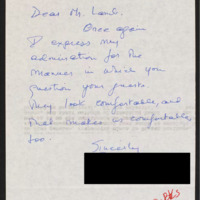 Dear Mr. Lamb.
Once again
I express my
admiration for the
manner in which you
question your guests.
They look comfortable, and
that makes us comfortable
too.
Sincerely
BKS